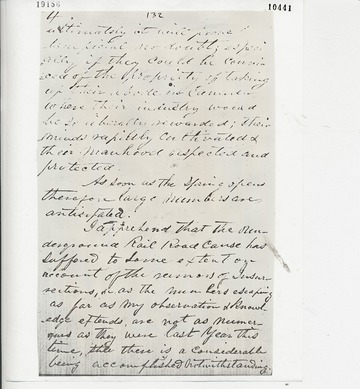 19156
10441
4
132
ultimately it will prove
beneficial no doubt, especi
ally if they could be convin
ced of the propriety of taking
up their abode in Canada
where their industry would
be so liberally rewarded; their
minds rapidly cultivated &
their manhood respected and
protected.
As soon as the Spring opens
therefore large numbers are
anticipated.
I apprehend that the Un-
derground Rail Road Cause has
suffered to some extent on
account of the rumors of Insur-
rections, in as the numbers escaping
as far as my observation & knowl-
edge extends, are not as numer-
ous as they were last year this
time, but there is a considerable
being accomplished Notwithstanding.